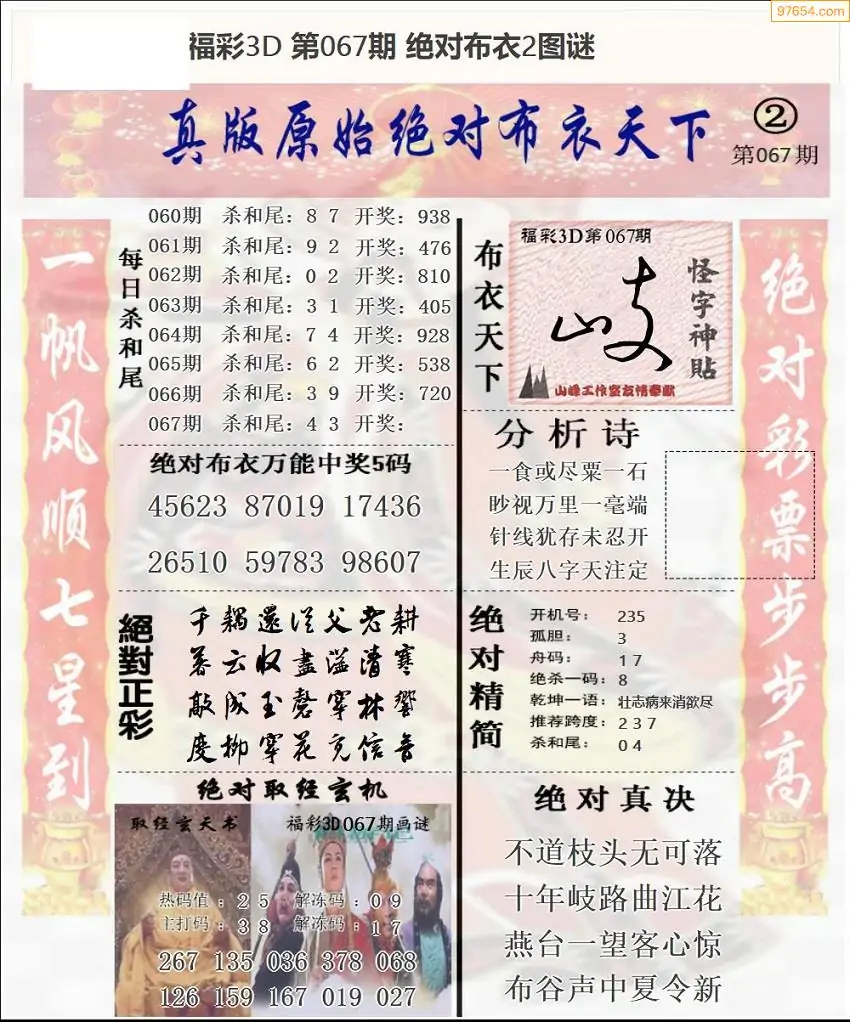 97654.com
福彩3D 第067期 绝对布衣2图谜
真版原始绝对布衣天下
②
第067期
一帆风顺七星到
每日杀和尾
060期 杀和尾：8 7 开奖：938
061期 杀和尾：9 2 开奖：476
062期 杀和尾：0 2 开奖：810
063期 杀和尾：3 1 开奖：405
064期 杀和尾：7 4 开奖：928
065期 杀和尾：6 2 开奖：538
066期 杀和尾：3 9 开奖：720
067期 杀和尾：4 3 开奖：
绝对布衣万能中奖5码
45623 87019 17436
26510 59783 98607
絕對正彩
千耦還從父老耕
暮云收盡溢清寒
敲成玉磬穿林響
度柳穿花充信音
绝对取经玄机
取经玄天书
福彩3D067期画谜
热码值：2 5 解冻码：0 9
主打码：3 8 解冻码：1 7
267 135 036 378 068
126 159 167 019 027
布衣天下
福彩3D第067期
岐
怪字神貼
山峰工作室友情奉献
分析诗
一食或尽粟一石
眇视万里一毫端
针线犹存未忍开
生辰八字天注定
绝对精简
开机号： 235
孤胆： 3
舟码： 1 7
绝杀一码：8
乾坤一语：壮志病来消欲尽
推荐跨度：2 3 7
杀和尾： 0 4
绝对真决
不道枝头无可落
十年岐路曲江花
燕台一望客心惊
布谷声中夏令新
绝对彩票步步高